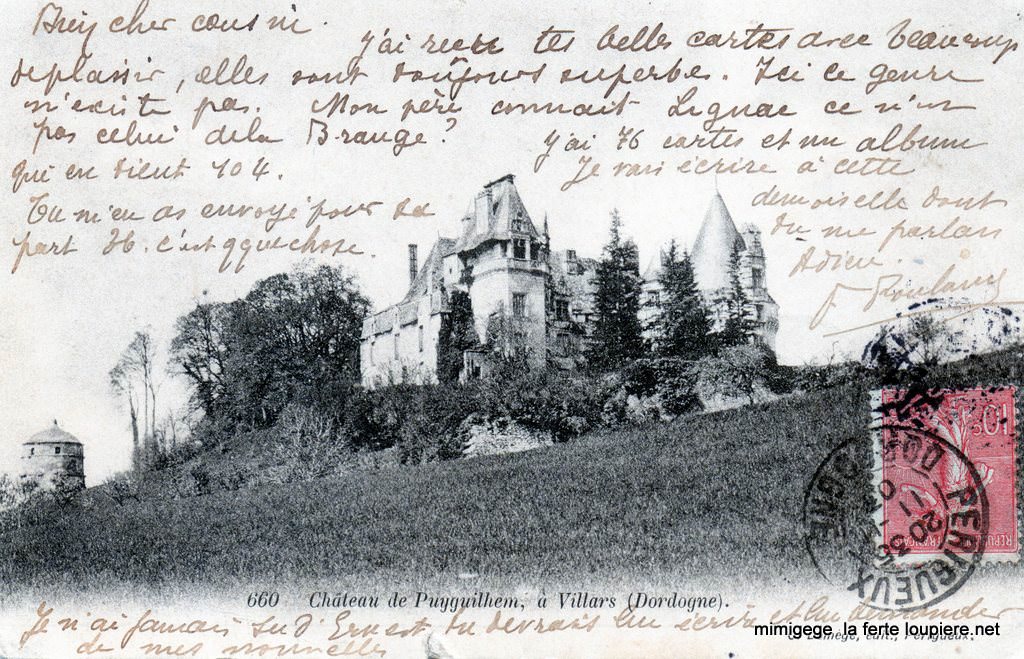 cher cousin.
j'ai reçu tes belles cartes avec beaucoup
de plaisir, elles sont toujours superbes. Ici ce genre
n'existe pas. Mon père connait Lignac ce n'est
pas celui de la Brauge?
j'ai 76 cartes et un album
qui en tient 104.
Je vais écrire à cette
demoiselle dont
tu me parlais
Adieu.
Tu m'en as envoyé pour ta
part 36. c'est qque chose.
660 Château de Puyguilhem, à Villars (Dordogne).
Je n'ai jamais su d'Ernest tu devrais lui écrire et lui demander
de mes nouvelles
édit., Périgueux.
mimigege la ferte loupiere.net
PERIGUEUX
DORDOGNE
10c